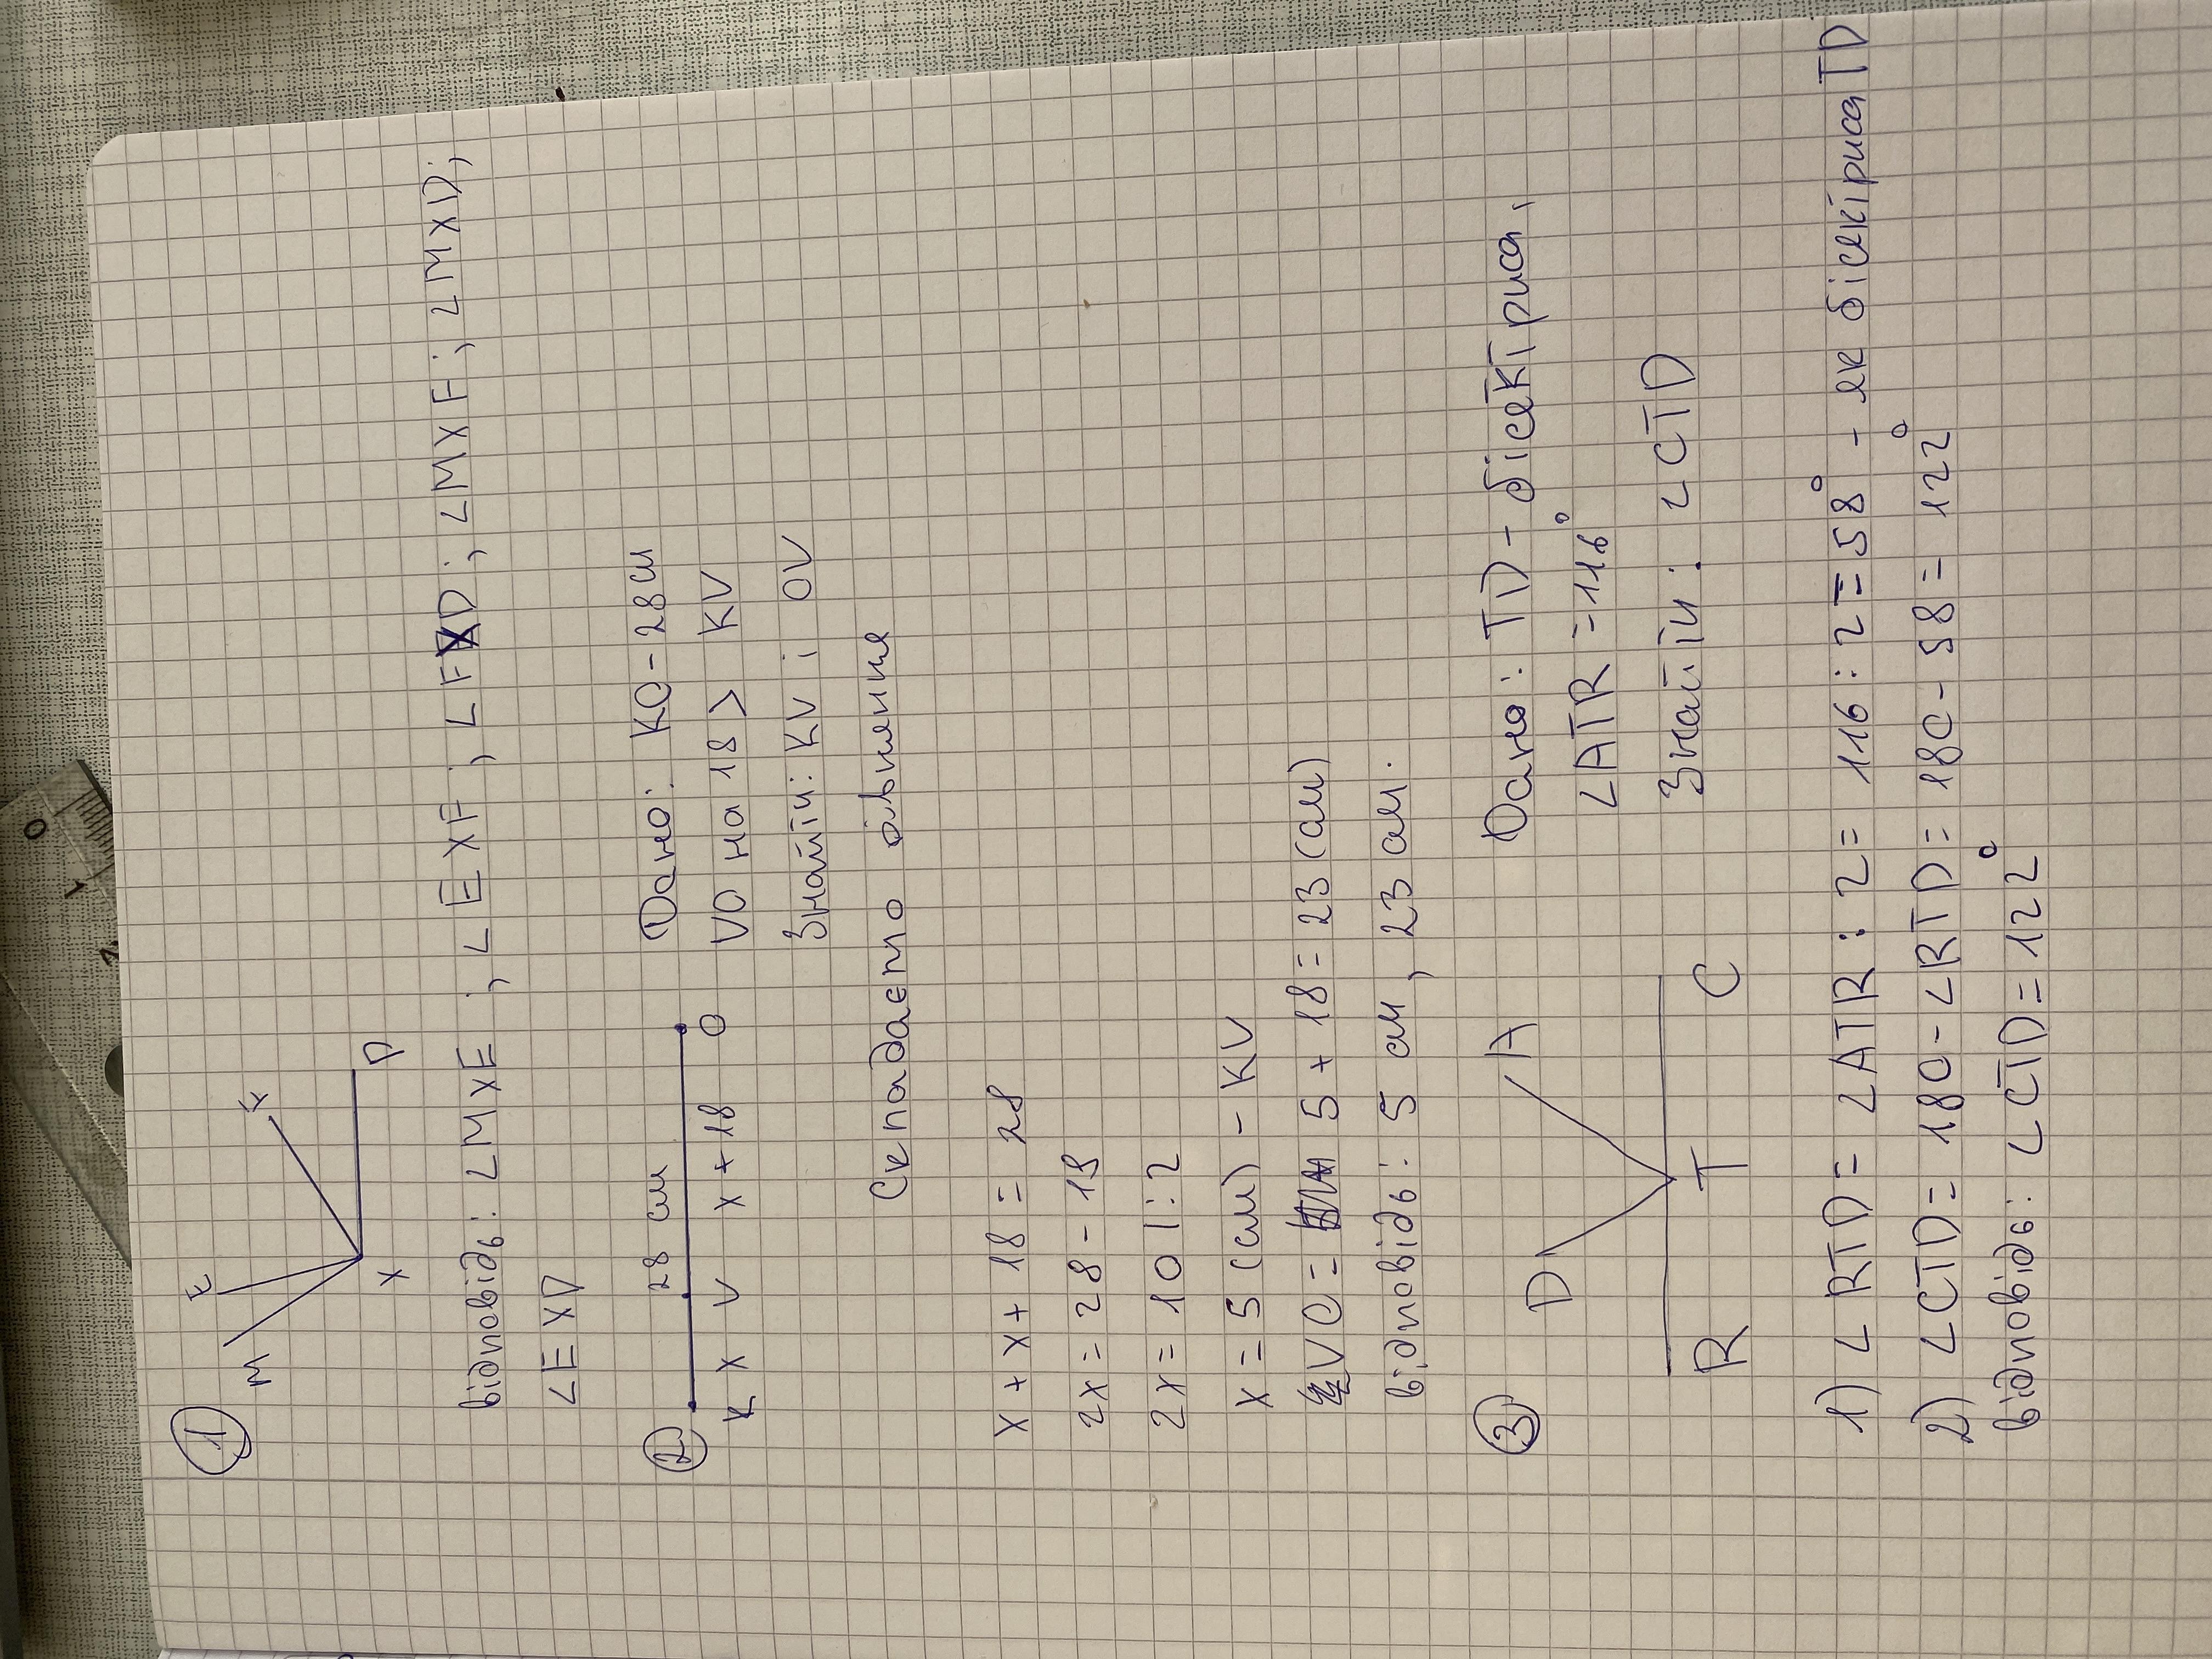 1
M E F D X
відповідь: ∠MXE ; ∠EXF ; ∠FXD ; ∠MXF ; ∠MXD ;
∠EXD
2 28 см Дано: KO - 28 см
K X V X + 18 O VO на 18 > KV
Знайти: KV i OV
Складаємо рівняння
x + x + 18 = 28
2x = 28 - 18
2x = 10 | : 2
x = 5 (см) - KV
VO = 5 + 18 = 23 (см)
відповідь: 5 см , 23 см.
3 D A Дано: TD - бісектриса,
∠ATR = 116°
R T C Знайти: ∠CTD
1) ∠RTD = ∠ATR : 2 = 116 : 2 = 58° - як бісектриса TD
2) ∠CTD = 180 - ∠RTD = 180 - 58 = 122°
відповідь: ∠CTD = 122°
0
1